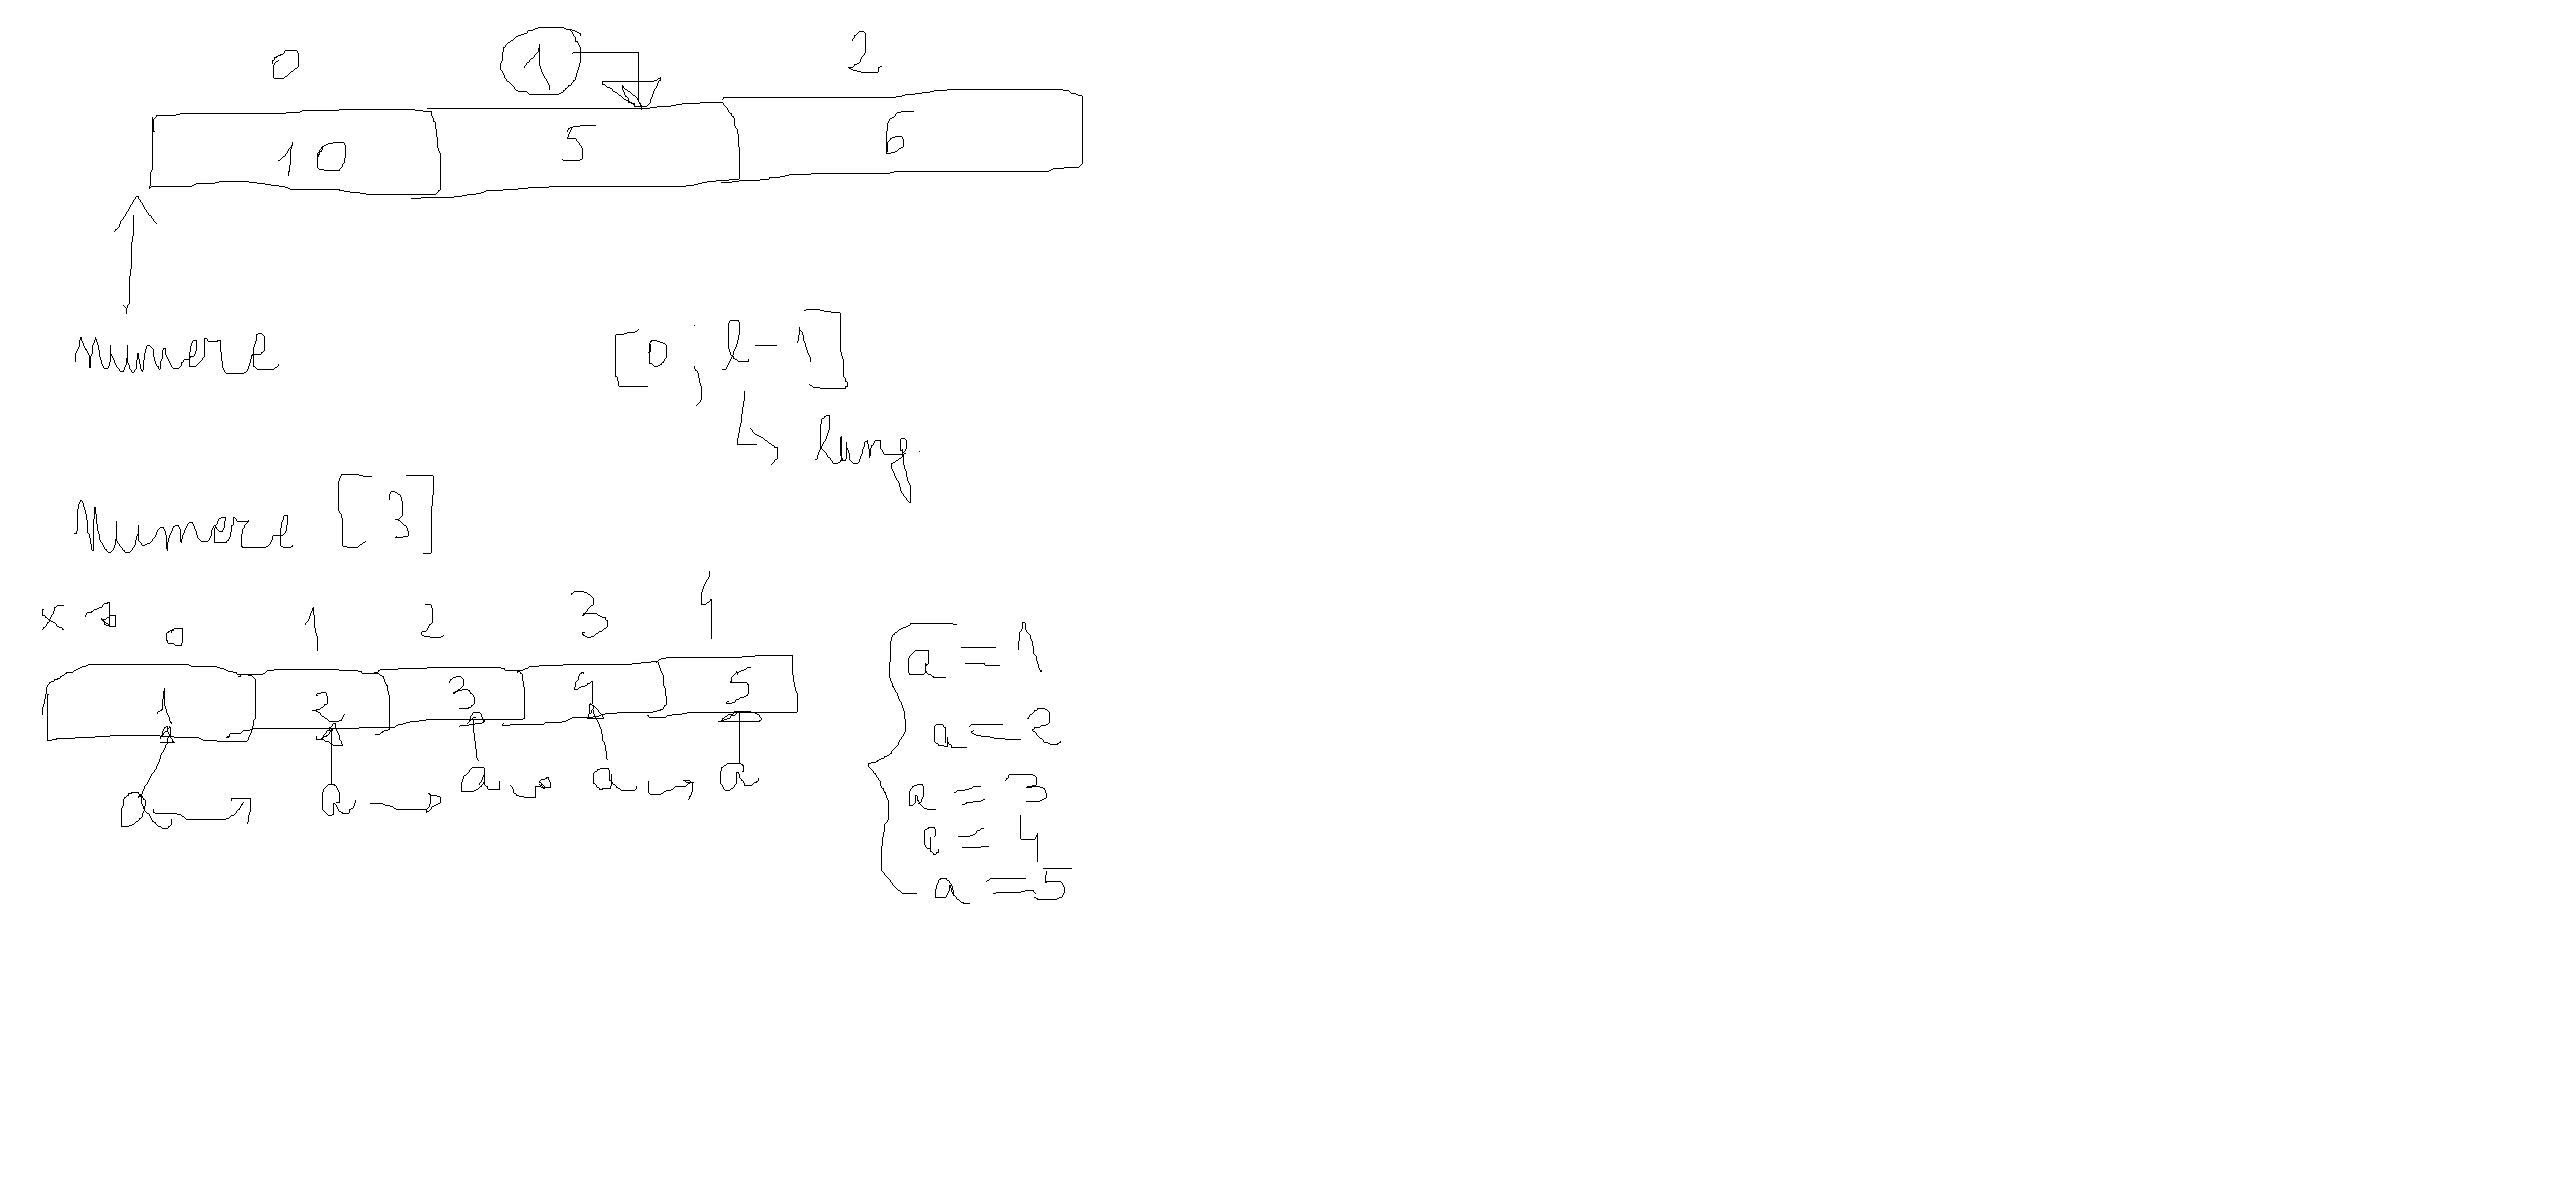 0 1 2
10 5 6
numere
[0 ; l-1]
lung
Numere [3]
x
0 1 2 3 4
1 2 3 4 5
a a a a a
a = 1
a = 2
a = 3
a = 4
a = 5